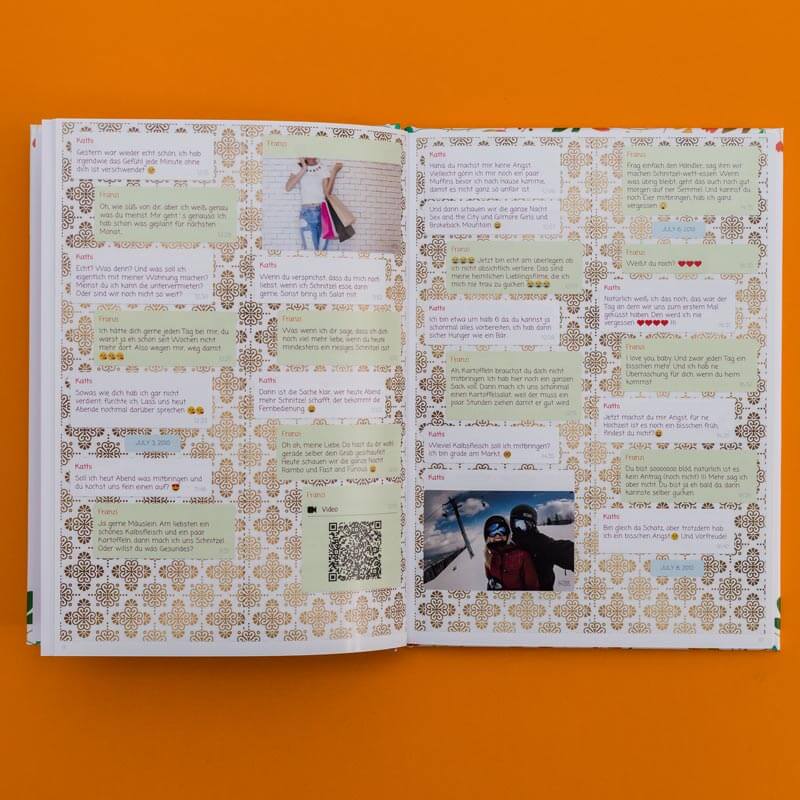 Kathi
Gestern war wieder echt schön, ich hab
irgendwie das Gefühl jede Minute ohne
dich ist verschwendet
Franzi
Oh, wie süß von dir, aber ich weiß genau
was du meinst. Mir geht´s genauso. Ich
hab schon was geplant für nächsten
Monat.
Kathi
Echt? Was denn? Und was soll ich
eigentlich mit meiner Wohnung machen?
Meinst du ich kann die untervermieten?
Oder sind wir noch nicht so weit?
Franzi
Ich hätte dich gerne jeden Tag bei mir, du
warst ja eh schon seit Wochen nicht
mehr dort. Also wegen mir, weg damit
Kathi
Sowas wie dich hab ich gar nicht
verdient, fürchte ich. Lass uns heut
Abende nochmal darüber sprechen
JULY 3, 2010
Kathi
Soll ich heut Abend was mitbringen und
du kochst uns fein einen auf?
Franzi
Ja gerne Mäuslein. Am liebsten ein
schönes Kalbsfleisch und ein paar
Kartoffeln, dann mach ich uns Schnitzel.
Oder willst du was Gesundes?
Franzi
Kathi
Wenn du versprichst, dass du mich noch
liebst, wenn ich Schnitzel esse, dann
gerne. Sonst bring ich Salat mit.
Franzi
Was wenn ich dir sage, dass ich dich
noch viel mehr liebe, wenn du heute
mindestens ein riesiges Schnitzel isst
Kathi
Dann ist die Sache klar, wer heute Abend
mehr Schnitzel schafft, der bekommt die
Fernbedienung.
Franzi
Oh oh, meine Liebe. Da hast du dir wohl
gerade selber den Grab geschaufelt.
Heute schauen wir die ganze Nacht
Rambo und Fast and Furious
Franzi
Video
Kathi
Hans du machst mir keine Angst.
Vielleicht gönn ich mir noch ein paar
Muffins bevor ich nach Hause komme,
damit es nicht ganz so unfair ist
Und dann schauen wir die ganze Nacht
Sex and the City und Gilmore Girls und
Brokeback Mountain
Franzi
Jetzt bin echt am überlegen ob
ich nicht absichtlich verliere. Das sind
meine heimlichen Lieblingsfilme, die ich
mich nie trau zu gucken
Kathi
Ich bin etwa um halb 6 da, du kannst ja
schonmal alles vorbereiten, ich hab dann
sicher Hunger wie ein Bär.
Franzi
Ah, Kartoffeln brauchst du doch nicht
mitbringen. Ich hab hier noch ein ganzen
Sack voll. Dann mach ich uns schonmal
einen Kartoffelsalat, weil der muss ein
paar Stunden ziehen damit er gut wird
Kathi
Wieviel Kalbsfleisch soll ich mitbringen?
Ich bin grade am Markt
Kathi
Franzi
Frag einfach den Händler, sag ihm wir
machen Schnitzel-wett-essen. Wenn
was übrig bleibt, geht das auch noch gut
morgen auf ner Semmel. Und kannst du
noch Eier mitbringen, hab ich ganz
vergessen
JULY 6, 2010
Franzi
Weißt du noch?
Kathi
Natürlich weiß ich das noch, das war der
Tag an dem wir uns zum erstem Mal
geküsst haben. Den werd ich nie
vergessen !!!
Franzi
I love you, baby. Und zwar jeden Tag ein
bisschen mehr. Und ich hab ne
Überraschung für dich, wenn du heim
kommst
Kathi
Jetzt machst du mir Angst, für ne
Hochzeit ist es noch ein bisschen früh,
findest du nicht?
Franzi
Du bist sooooooo blöd, natürlich ist es
kein Antrag (noch nicht) !!! Mehr sag ich
aber nicht. Du bist ja eh bald da, dann
kannste selber gucken.
Kathi
Bin gleich da Schatz, aber trotzdem hab
ich ein bisschen Angst Und Vorfreude!
JULY 8, 2010